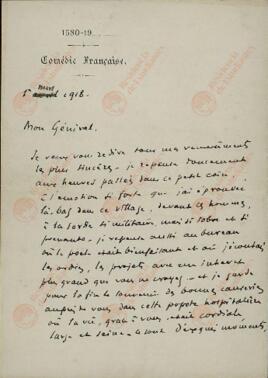 1680-19..
Comédie Française.
1918.
Mon Général,
Je veux vous redire tous mes remerciements
les plus sincères – je repense doucement
aux heures passées dans ce petit coin,
à l'émotion si forte que j'ai éprouvée
là-bas dans ce village, devant ces hommes,
à la sortie si militaire, mais si sobre et si
prenante – je repense aussi au bureau
où le poele était bienfaisant et où j'écoutais
les ordres, les projets avec un intérêt
plus grand que vous ne croyez – et je garde
pour la fin le souvenir de bonnes causeries
auprès de vous dans cette popote hospitalière
où la vie, grâce à vous, était cordiale,
large et saine – ce sont d'exquis moments,